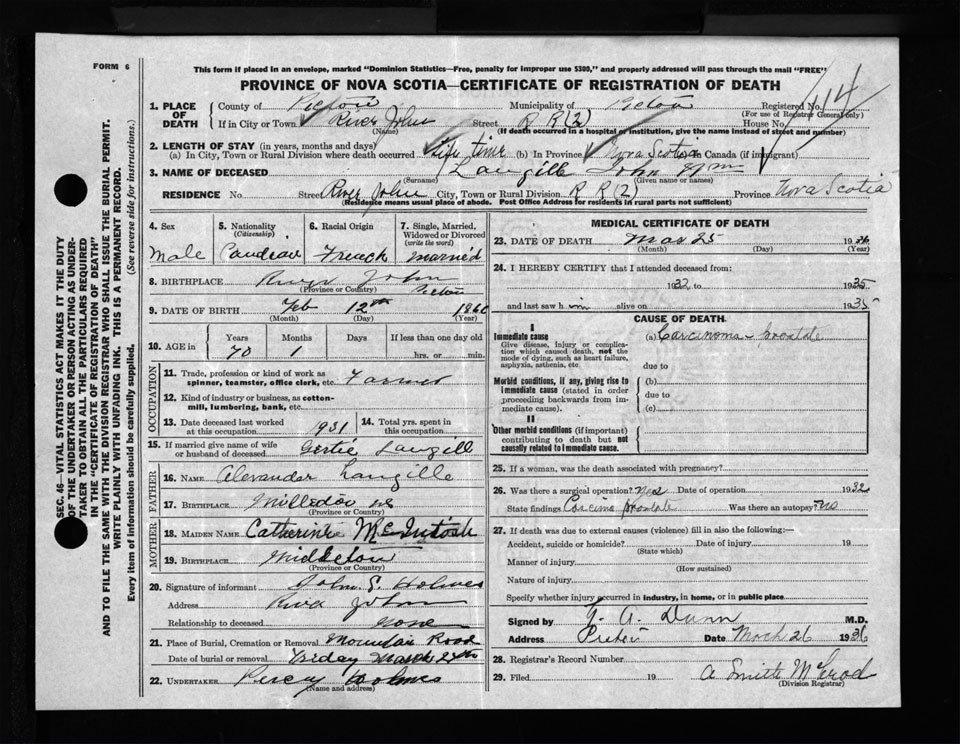 FORM 6
This form if placed in an envelope, marked "Dominion Statistics—Free, penalty for improper use $300," and properly addressed will pass through the mail "FREE"
PROVINCE OF NOVA SCOTIA—CERTIFICATE OF REGISTRATION OF DEATH
1. PLACE OF DEATH { County of Pictou Municipality of Pictou Registered No. 414
(For use of Registrar General only)
If in City or Town River John Street R R (2) House No.
(Name) (If death occurred in a hospital or institution, give the name instead of street and number)
2. LENGTH OF STAY (in years, months and days)
(a) In City, Town or Rural Division where death occurred Life time (b) In Province Nova Scotia in Canada (if immigrant)
3. NAME OF DECEASED Langill John Wm
(Surname) (Given name or names)
RESIDENCE No. Street River John City, Town or Rural Division R R (2) Province Nova Scotia
(Residence means usual place of abode. Post Office Address for residents in rural parts not sufficient)
4. Sex 5. Nationality (Citizenship) 6. Racial Origin 7. Single, Married, Widowed or Divorced (write the word)
Male Candian French married
8. BIRTHPLACE River John
(Province or Country) Pictou
9. DATE OF BIRTH Feb 12th 186
(Month) (Day) (Year)
10. AGE in { Years Months Days If less than one day old
70 1 hrs. or min.
OCCUPATION
11. Trade, profession or kind of work as spinner, teamster, office clerk, etc. Farmer
12. Kind of industry or business, as cotton-mill, lumbering, bank, etc.
13. Date deceased last worked at this occupation. 1931 14. Total yrs. spent in this occupation.
15. If married give name of wife or husband of deceased Gertie Langill
FATHER
16. NAME Alexander Langille
17. BIRTHPLACE
(Province or Country)
MOTHER
18. MAIDEN NAME Catherine McIntosh
19. BIRTHPLACE Middleton
(Province or Country)
20. Signature of informant John S. Holmes
Address River John
Relationship to deceased none
21. Place of Burial, Cremation or Removal Mountain Road
Date of burial or removal Friday March 27th
22. UNDERTAKER Percy Holmes
(Name and address)
MEDICAL CERTIFICATE OF DEATH
23. DATE OF DEATH Mar 25 1936
(Month) (Day) (Year)
24. I HEREBY CERTIFY that I attended deceased from:
1932 to 1935
and last saw him alive on 1935
CAUSE OF DEATH
I
Immediate cause (a) Carcinoma prostate
Give disease, injury or complication which caused death, not the mode of dying, such as heart failure, asphyxia, asthenia, etc. due to
Morbid conditions, if any, giving rise to immediate cause (stated in order proceeding backwards from immediate cause). (b)
due to
(c)
II
Other morbid conditions (if important) contributing to death but not causally related to immediate cause.
25. If a woman, was the death associated with pregnancy?
26. Was there a surgical operation? Yes Date of operation 1932
State findings Carcinoma prostate Was there an autopsy? no
27. If death was due to external causes (violence) fill in also the following:—
Accident, suicide or homicide? Date of injury 19
(State which)
Manner of injury
(How sustained)
Nature of injury
Specify whether injury occurred in industry, in home, or in public place
Signed by G. A. Dunn M.D.
Address Pictou Date March 26 1936
28. Registrar's Record Number
29. Filed 19 A Smith McLeod
(Division Registrar)
SEC. 46—VITAL STATISTICS ACT MAKES IT THE DUTY
OF THE UNDERTAKER OR PERSON ACTING AS UNDER-
TAKER TO OBTAIN ALL THE PARTICULARS REQUIRED
IN THE "CERTIFICATE OF REGISTRATION OF DEATH"
AND TO FILE THE SAME WITH THE DIVISION REGISTRAR WHO SHALL ISSUE THE BURIAL PERMIT.
WRITE PLAINLY WITH UNFADING INK. THIS IS A PERMANENT RECORD.
Every item of information should be carefully supplied. (See reverse side for instructions.)